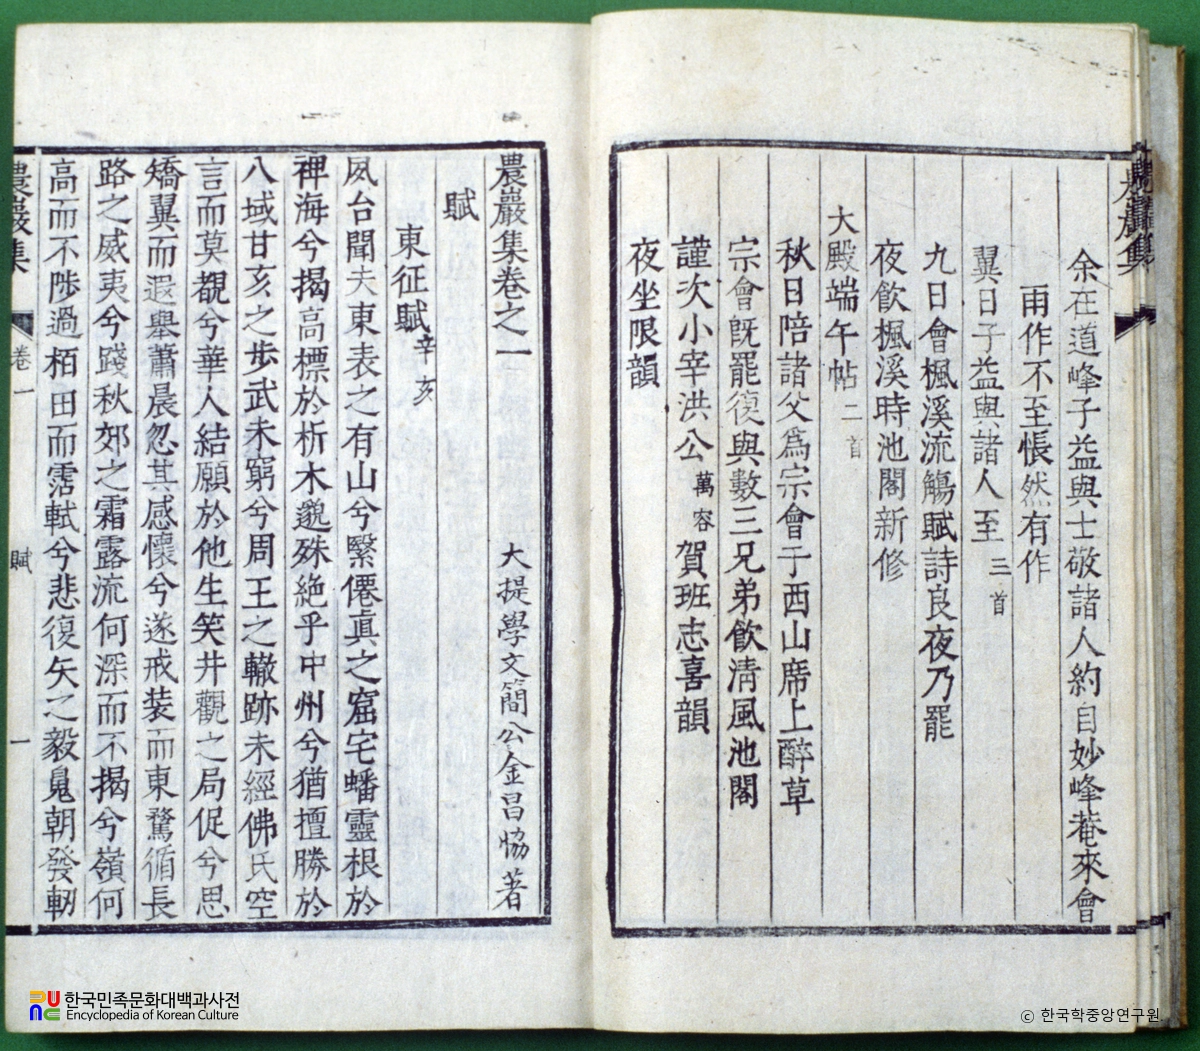 農巖集
余在道峰子益與士敬諸人約自妙峰菴來會
雨作不至悵然有作
翼日子益與諸人至三首
九日會楓溪流觴賦詩良夜乃罷
夜飮楓溪時池閣新修
大殿端午帖二首
秋日陪諸父爲宗會于西山席上醉草
宗會旣罷復與數三兄弟飮淸風池閣
謹次小宰洪公萬容賀班志喜韻
夜坐限韻
農巖集卷之一
大提學文簡公金昌協著
賦
東征賦辛亥
夙台聞夫東表之有山兮繄僊眞之窟宅蟠靈根於
裨海兮揭高標於析木邈殊絶乎中州兮猶擅勝於
八域甘亥之步武未窮兮周王之轍跡未經佛氏空
言而莫覩兮華人結願於他生笑井觀之局促兮思
矯翼而遐擧蕭晨忽其感懷兮遂戒装而東騖循長
路之威夷兮踐秋郊之霜露流何深而不揭兮嶺何
高而不陟過栢田而霑軾兮悲復矢之毅鬼朝發軔
農巖集 卷一 賦 一
한국민족문화대백과사전
Encyclopedia of Korean Culture
ⓒ 한국학중앙연구원